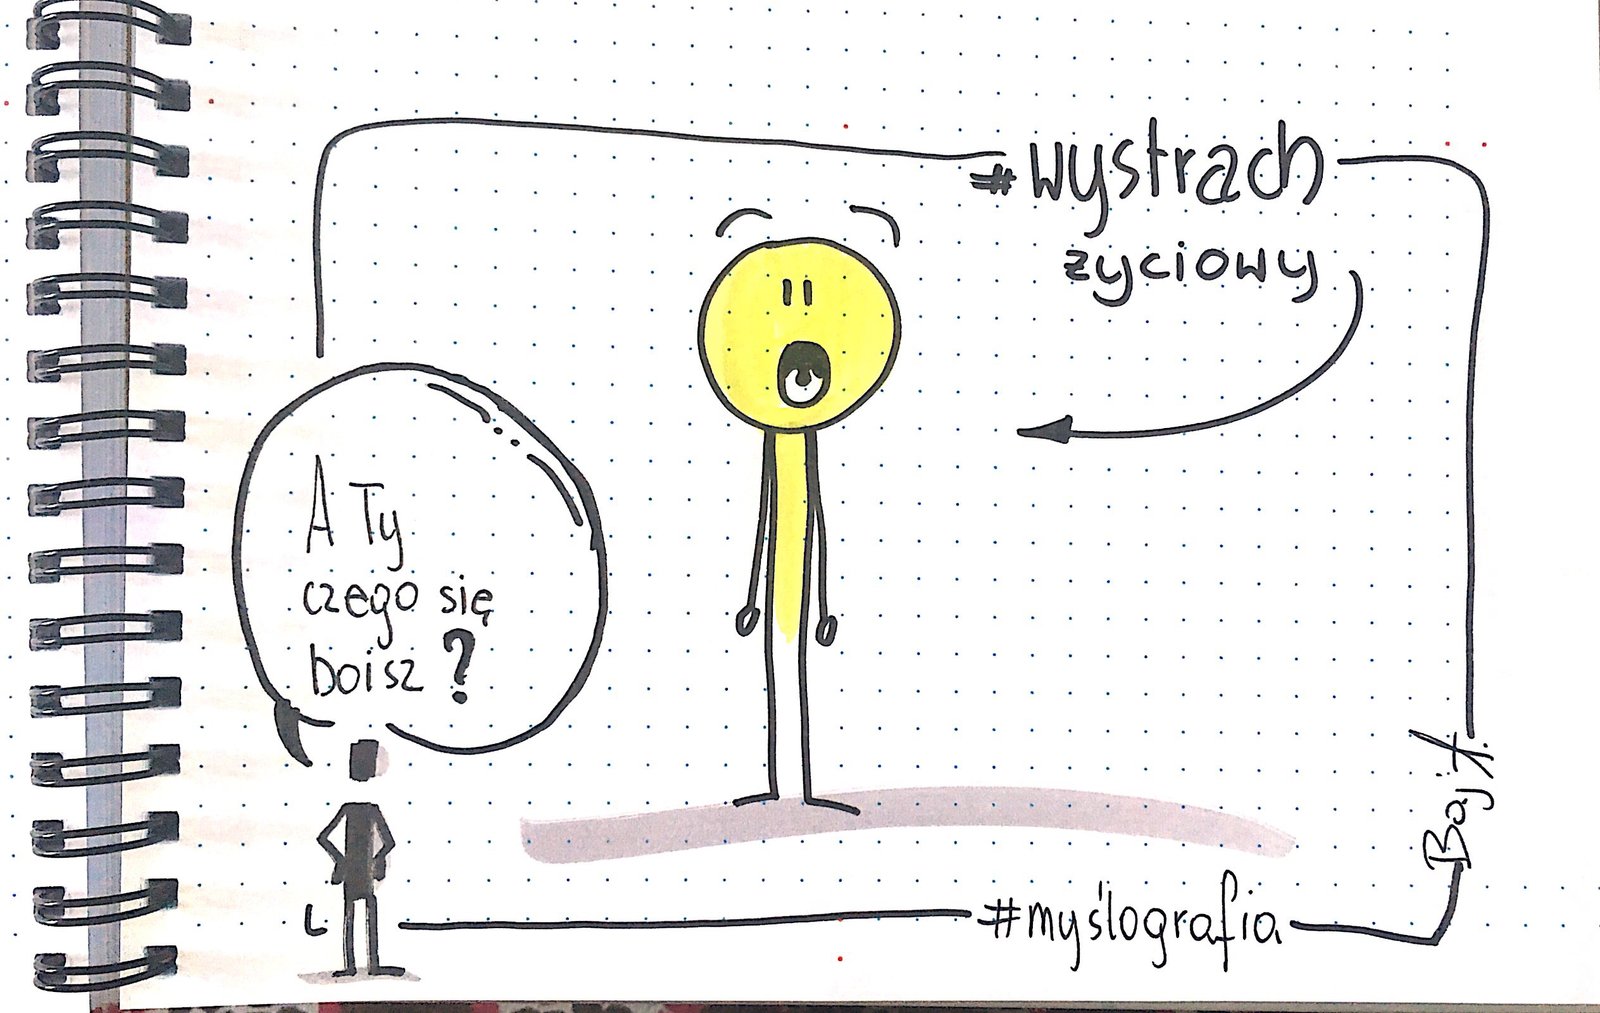 #wystrach
życiowy
A Ty
czego się
boisz?
#myślografia
Bajt.